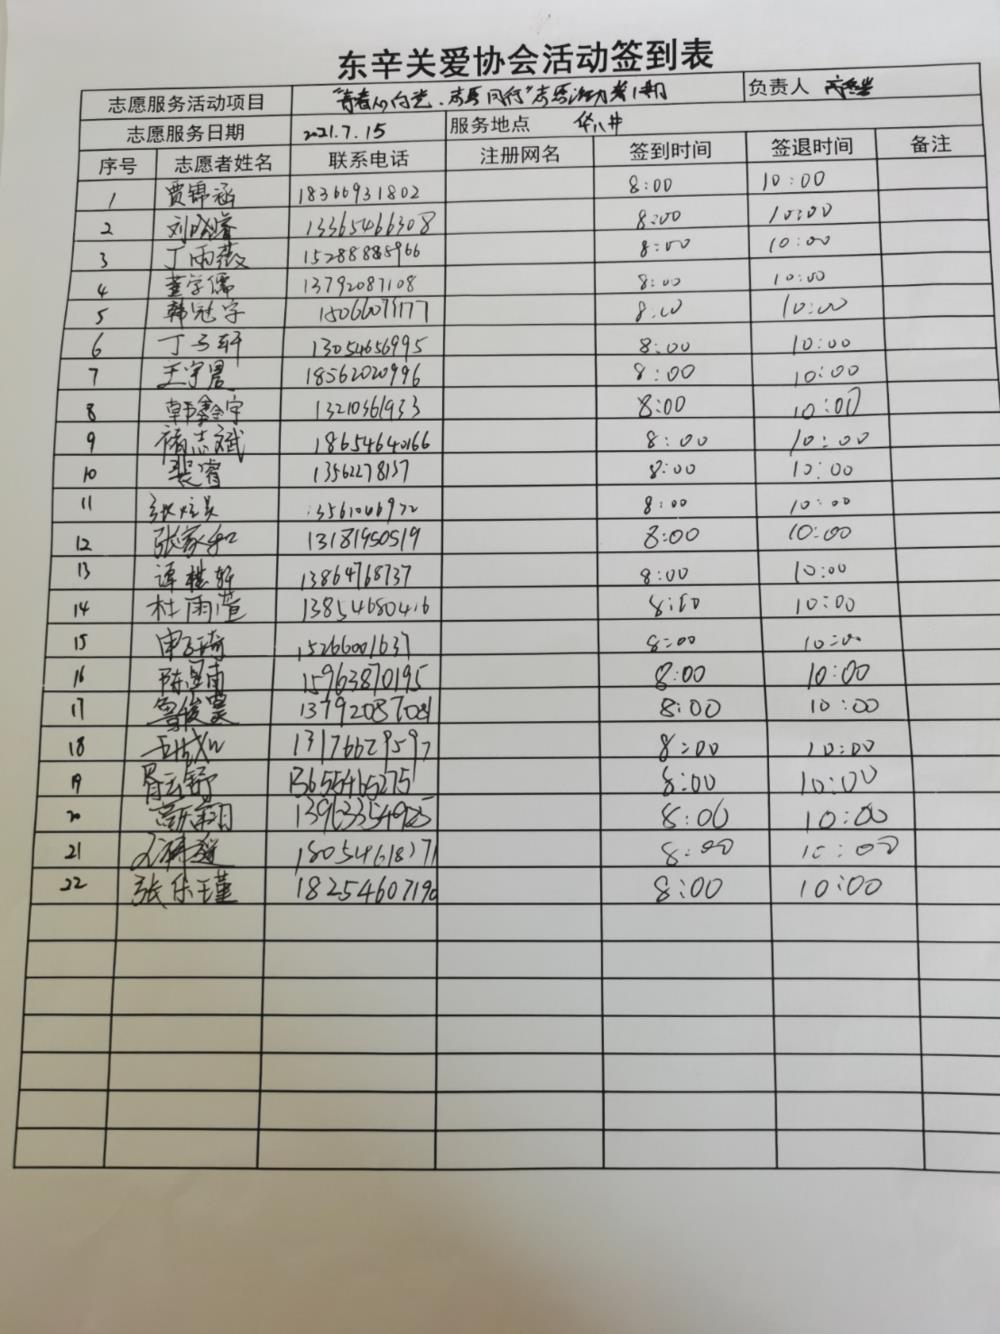 东辛关爱协会活动签到表
志愿服务活动项目 负责人
志愿服务日期 2021.7.15 服务地点 华八井
序号 志愿者姓名 联系电话 注册网名 签到时间 签退时间 备注
1 贾锦涵 18366931802 8:00 10:00
2 刘 13365466308 8:00 10:00
3 丁雨薇 15288885966 8:00 10:00
4 董学儒 13792087108 8:00 10:00
5 韩冠宇 8:00 10:00
6 丁子轩 13054656995 8:00 10:00
7 王宇 18562020996 8:00 10:00
8 韩鑫宇 13210361933 8:00 10:00
9 志斌 18654640166 8:00 10:00
10 裴睿 13562278157 8:00 10:00
11 张 8:00 10:00
12 张家和 13181950519 8:00 10:00
13 谭 13864768737 8:00 10:00
14 杜雨萱 13854680416 8:00 10:00
15 15266001637 8:00 10:00
16 陈 15963870195 8:00 10:00
17 鲁俊昊 13792087081 8:00 10:00
18 13176629597 8:00 10:00
19 胥云舒 13655465275 8:00 10:00
20 13963354925 8:00 10:00
21 18054618771 8:00 10:00
22 张乐瑾 18254607190 8:00 10:00